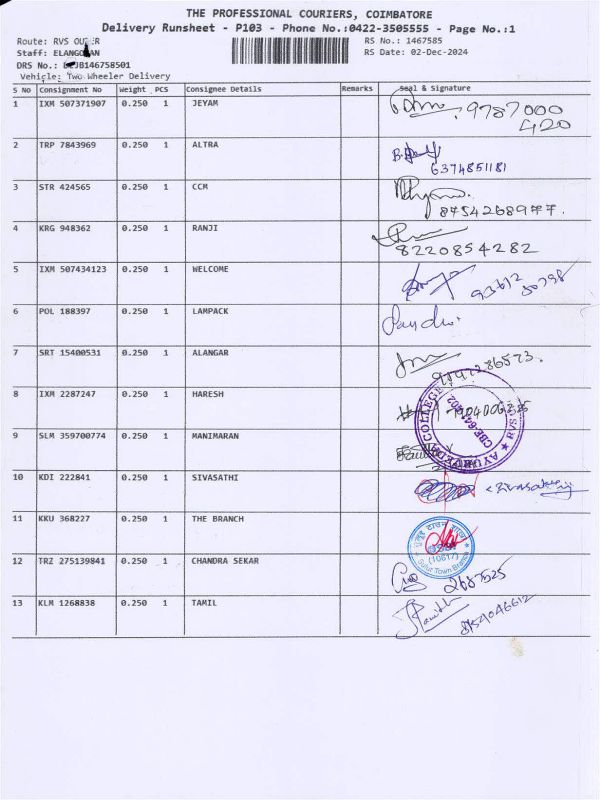 THE PROFESSIONAL COURIERS, COIMBATORE
Delivery Runsheet - P103 - Phone No.:0422-3505555 - Page No.:1
Route: RVS
RS No.: 1467585
Staff:
RS Date: 02-Dec-2024
DRS No.:
Vehicle: Two Wheeler Delivery
S No Consignment No Weight PCS Consignee Details Remarks Seal & Signature
1 IXM 507371907 0.250 1 JEYAM 9787000
420
2 TRP 7843969 0.250 1 ALTRA
6374851181
3 STR 424565 0.250 1 CCM
8754268977.
4 KRG 948362 0.250 1 RANJI
8220854282
5 IXM 507434123 0.250 1 WELCOME 93612
80798
6 POL 188397 0.250 1 LAMPACK
7 SRT 15400531 0.250 1 ALANGAR
8 IXM 2287247 0.250 1 HARESH
9 SLM 359700774 0.250 1 MANIMARAN
AYURVEDA COLLEGE
RVS
10 KDI 222841 0.250 1 SIVASATHI
11 KKU 368227 0.250 1 THE BRANCH
(10617)
Sulur Town Branch
12 TRZ 275139841 0.250 1 CHANDRA SEKAR
2687525
13 KLM 1268838 0.250 1 TAMIL
8754046612